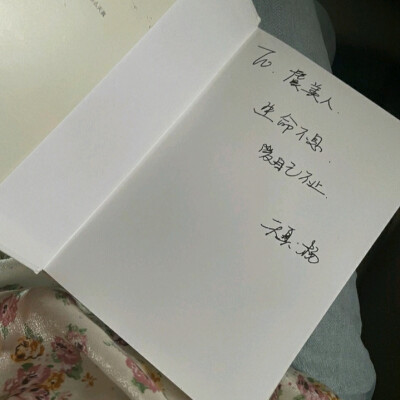 To. 虞美人.
生命不息.
爱自己不止.
天真.杨